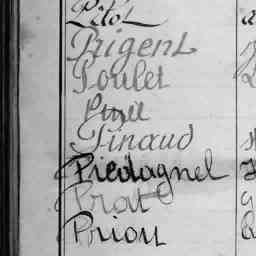 Pilot
Prigent
Poulet
Pinaud
Piedagnel
Prat
Priou